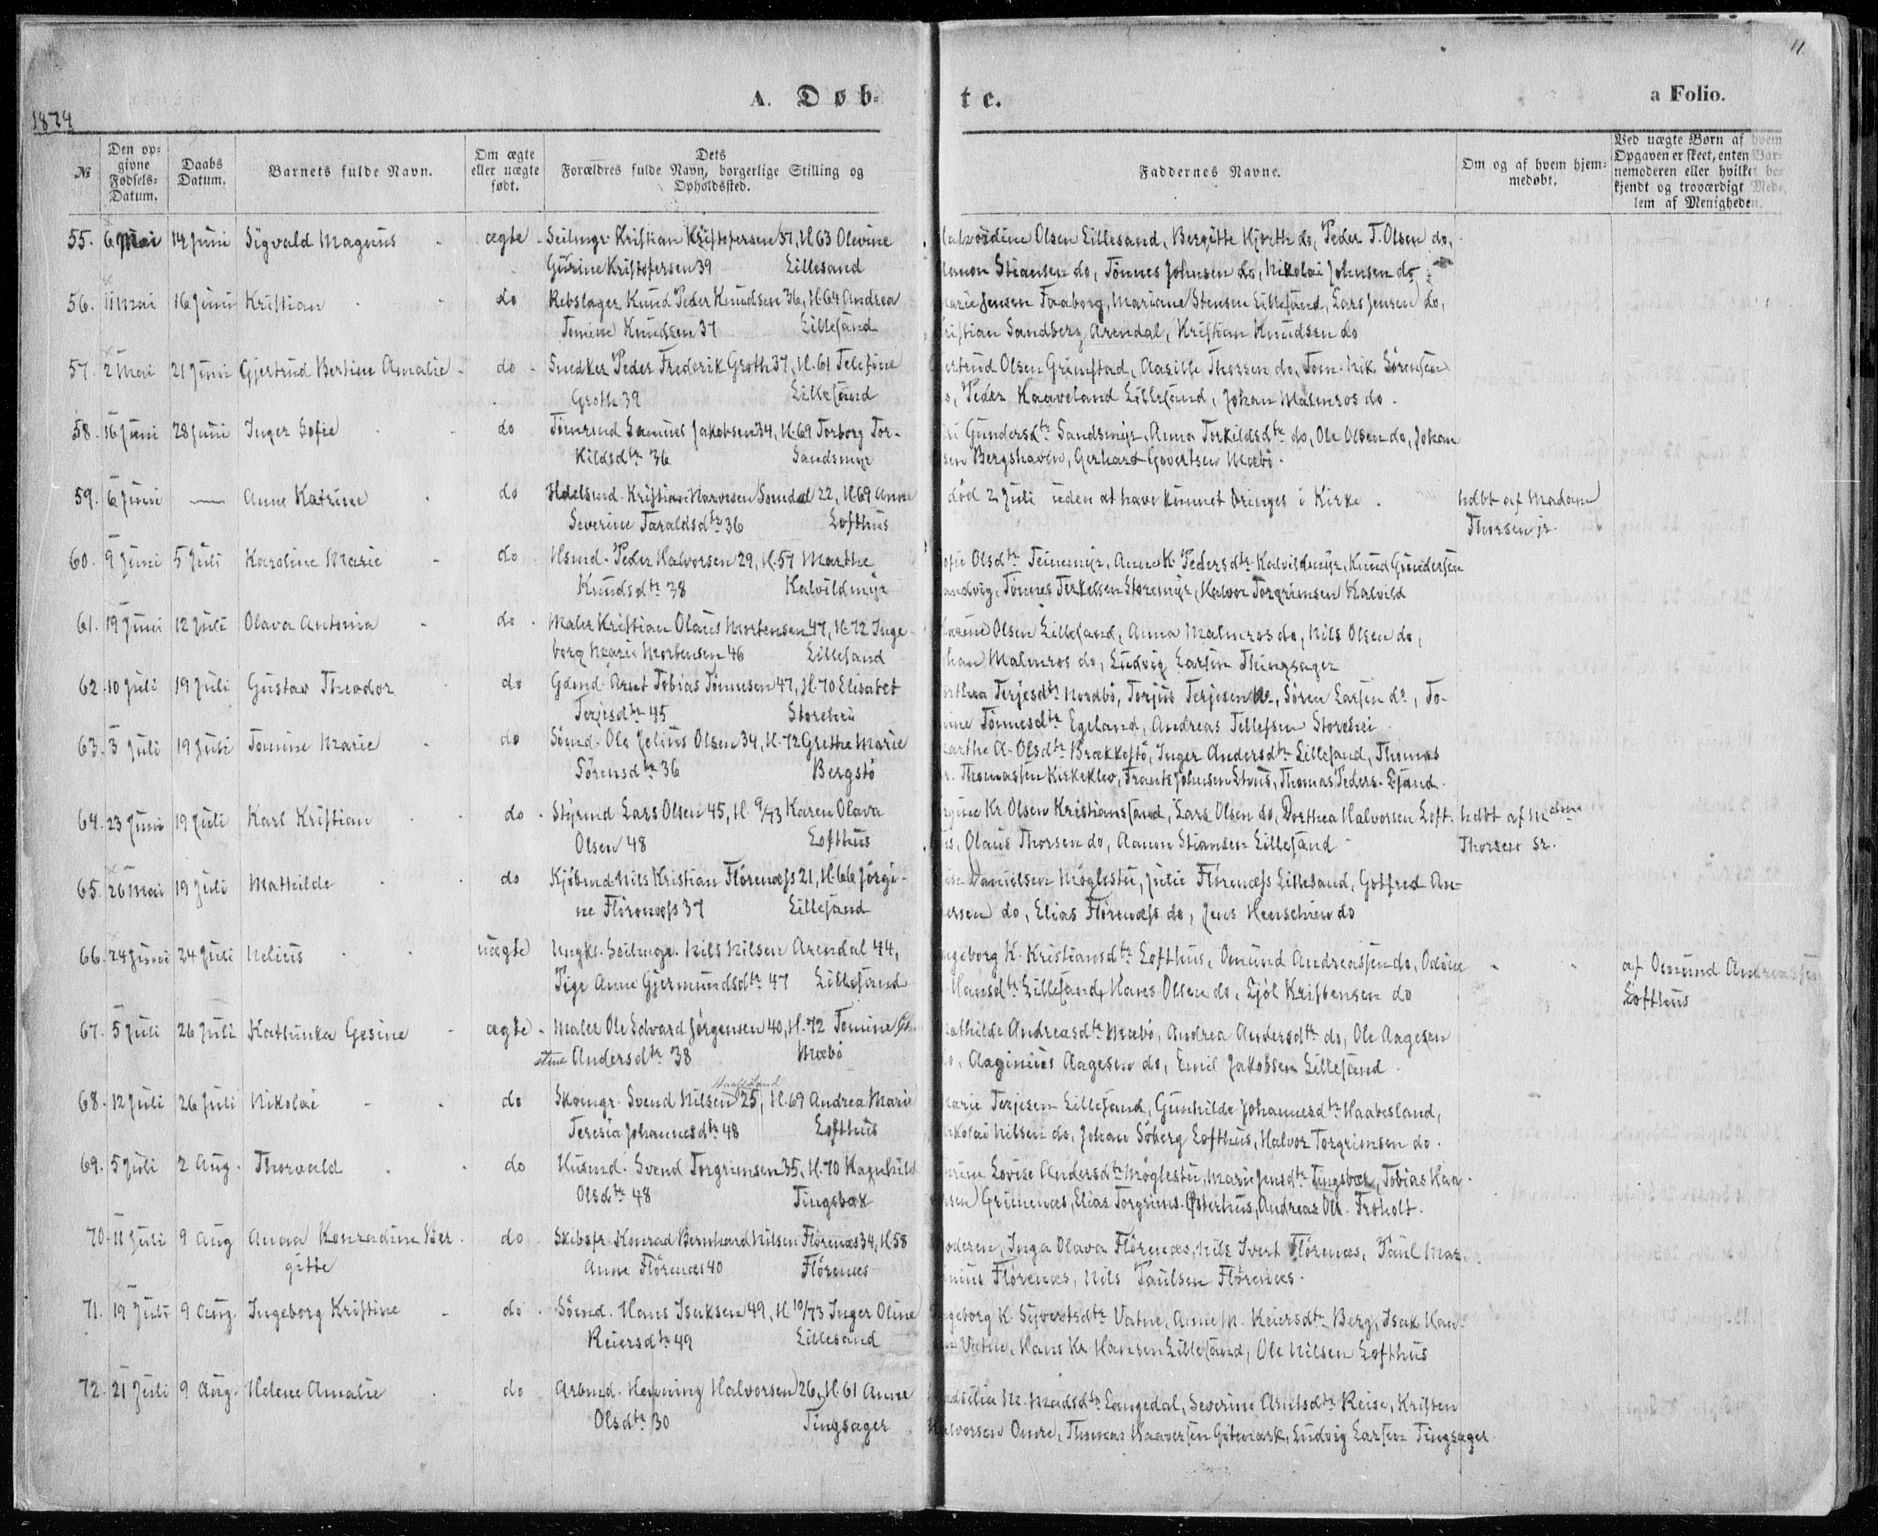 11
1874
A. Døb-
te.
a Folio.
№ Den op-givne Fødsels-Datum. Daabs Datum. Barnets fulde Navn. Om ægte eller uægte født. Dets Forældres fulde Navn, borgerlige Stilling og Opholdssted. Faddernes Navne. Om og af hvem hjem-medøbt. Ved uægte Børn af hvem Opgaven er skeet, enten Bar-nemoderen eller hvilket be-kjendt og troværdigt Med-lem af Menigheden.
55. 6 Mai 14 Juni Sigvald Magnus ægte Seilmgr Kristian Kristofersen 37, H.63 Olevine Olsen Lillesand, Bergitte Hjorth do, Peder T. Olsen do,
Gurine Kristofersen 39 Lillesand Stiansen do, Tønnes Johnsen do, Nikolai Johnsen do
56. 11 Mai 16 Juni Kristian do Rebslager Knud Peder Knudsen 36, H.64 Andrea Jensen Faaborg, Mariane Stensen Lillesand, Lars Jensen do,
Tomine Knudsen 37 Lillesand Sandberg Arendal, Kristian Knudsen do
57. 2 Mai 21 Juni Gjertrud Bertine Amalie do Snedker Peder Frederik Groth 37, H.61 Telefine Olsen Grimstad, Aasille Thorsen do, Tom. Nik. Sørensen
Groth 39 Lillesand Peder Kaaveland Lillesand, Johan Malmros do
58. 16 Juni 28 Juni Inger Sofie do Tømrmd Samuel Jakobsen 34, H.69 Torborg Tor- Gundersdtr Sandsmyr, Anna Torkildsdtr do, Ole Olsen do, Johan
kildsdtr 36 Sandsmyr Bergshaven, Gerhard Govertsen Mæbø
59. 6 Juni — Anne Katrine do Kristian Halvorsen Somdal 22, H.69 Anne død 2 Juli uden at have kunnet bringes i Kirke. hdbt af Madam
Severine Taraldsdtr 36 Lofthus Thorsen jr.
60. 9 Juni 5 Juli Karoline Marie do Hsmd. Peder Halvorsen 29, H.57 Marthe Olsdtr Anne K. Pedersdtr Kalvildmyr, Knud Gundersen
Knudsdtr 38 Kalvildmyr Tønnes Terkelsen Storemyr, Halvor Torgrimsen Kalvild
61. 19 Juni 12 Juli Olava Antonia do Maler Kristian Olaus Mortensen 47, H.72 Inge- Olsen Lillesand, Anna Malmros do, Nils Olsen do,
borg Marie Mortensen 46 Lillesand Malmros do, Ludvig Larsen Thingsager
62. 10 Juli 19 Juli Gustav Theodor do Gdmd. Arnt Tobias Tønnesen 47, H.70 Elisabet Terjesdtr Nordbø, Torjus Terjesen do, Søren Larsen do, To-
Terjesdtr 45 Storehei Tønnesdtr Egeland, Andreas Tellefsen Storehei
63. 3 Juli 19 Juli Tomine Marie do Sømd. Ole Julius Olsen 34, H.72 Grethe Marie A. Olsdtr Brækkestø, Inger Andersdtr Lillesand, Thomas
Sørensdtr 36 Bergstø Thomassen Kirkeklev, Frants Johnsen Thomas Peders.
64. 23 Juni 19 Juli Karl Kristian do Styrmd Lars Olsen 45, H. 9/73 Karen Olava Kr. Olsen Kristianssand, Lars Olsen do, Dorthea Halvorsen Loft- hdbt af Madam
Olsen 48 Lofthus Olaus Thorsen do, Aanon Stiansen Lillesand Thorsen sr.
65. 26 Mai 19 Juli Mathilde do Kjøbmd Nils Kristian Flørenæss 21, H.66 Jørgi- Danielsen Møglestu, Julie Flørenæss Lillesand, Gotfred An-
ne Flørenæss 37 Lillesand do, Elias Flørenæss do, Jens Henschien do
66. 24 Juni 24 Juli Nelius uægte Ungkl. Seilmgr. Nils Nilsen Arendal 44, K. Kristiansdtr Lofthus, Omund Andreassen do, Odine af Omund Andreassen
Pige Anne Gjermundsdtr 47 Lillesand Hansdtr Lillesand, Hans Olsen do, Ejøl Kristensen do Lofthus
67. 5 Juli 26 Juli Kathinka Gesine ægte Maler Ole Edvard Jørgensen 40, H.72 Tomine Andreasdtr Mæbø, Andrea Andersdtr do, Ole Aagesen
Andersdtr 38 Mæbø Aaginius Aagesen do, Emil Jakobsen Lillesand
68. 12 Juli 26 Juli Nikolai do Skomgr. Svend Nilsen Haabesland 25, H.69 Andrea Marie Terjesen Lillesand, Gunhilde Johannesdtr Haabesland,
Teresia Johannesdtr 48 Lofthus Nilsen do, Johan Søberg Lofthus, Halvor Torgrimsen do.
69. 5 Juli 2 Aug. Thorvald do Husmd. Svend Torgrimsen 35, H.70 Ragnhild Lovise Andersdtr Møglestu, Mari Jensdtr Tingsbæk, Tobias Haa-
Olsdtr 48 Tingsbæk Grimenæs, Elias Torgrims. Østerhus, Andreas Ols. Froholt.
70. 11 Juli 9 Aug Anna Konradine Ber- do Skibsfr. Konrad Bernhard Nilsen Flørenæs 34, H.58 Inga Olava Flørenæs, Nils Ivert Flørenæs, Paul Mar-
gitte Anne Flørenæs 40 Flørenæs Flørenæs, Nils Paulsen Flørenæs.
71. 19 Juli 9 Aug. Ingeborg Kristine do Sømd. Hans Isaksen 49, H. 10/73 Inger Oline K. Syvertsdtr Vatne, Anne M. Reiersdtr Berg, Isak Han-
Reiersdtr 49 Lillesand Vatne, Hans Kr. Hansen Lillesand, Ole Nilsen Lofthus
72. 21 Juli 9 Aug. Helene Amalie do Arbmd. Henning Halvorsen 26, H.61 Anne M. Madsdtr Langedal, Severine Arntsdtr Reise, Kristen
Olsdtr 30 Tingsager Halvorsen Omre, Thomas Haaversen Gitmark, Ludvig Larsen Tingsager.